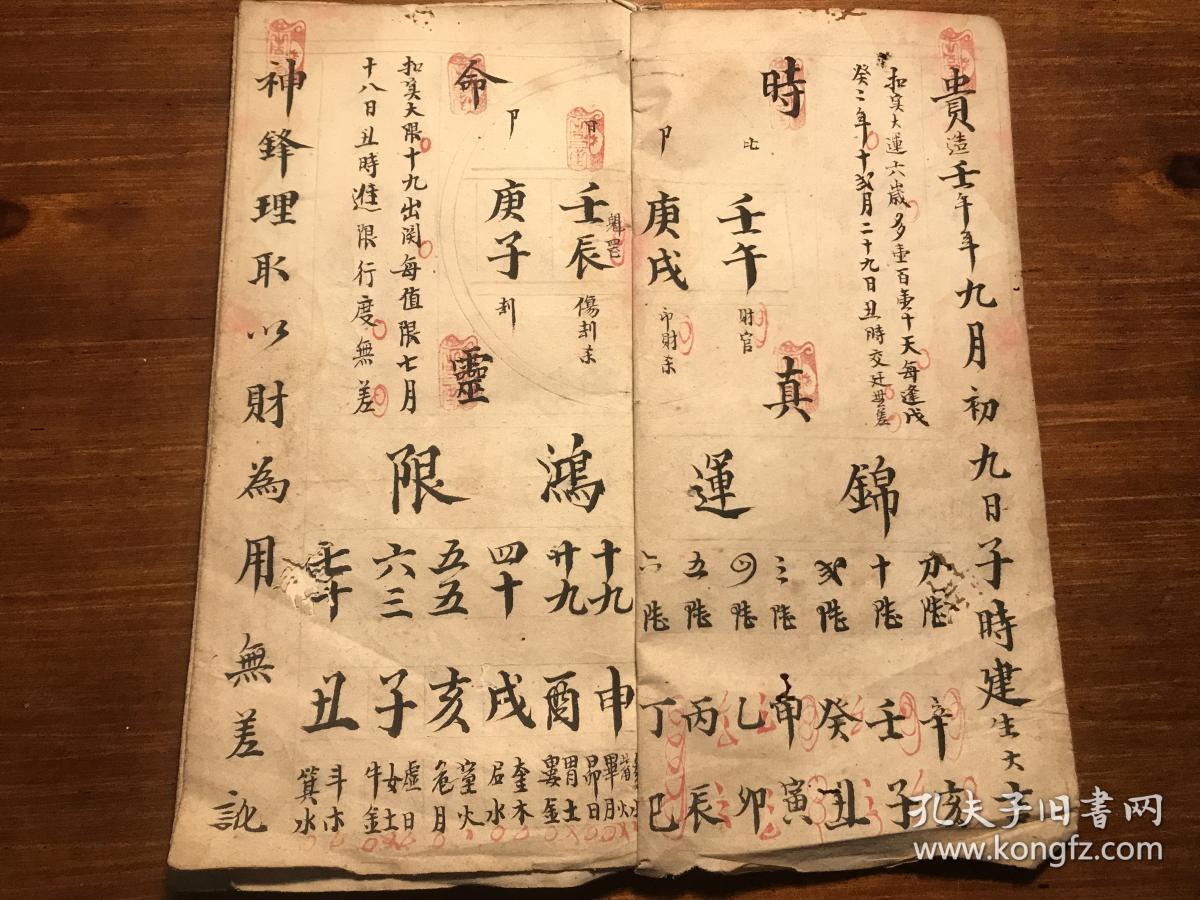 貴造壬午年九月初九日子時建生大吉
扣實大運六歲多壹百壹十天每逢戊
癸二年十弍月二十九日丑時交廷毋舊
時真
比
壬午
財官
卩
庚戌
印財杀
日
壬辰
魁罡
傷刦杀
卩
庚子
刦
命靈
扣實大限十九出関每值限七月
十八日丑時進限行度無差
錦運
十陸
弍陸
三陸
四陸
五陸
六陸
辛亥
壬子
癸丑
甲寅
乙卯
丙辰
丁巳
鴻限
十九
廿九
四十
五五
六三
申
酉
戌
亥
子
丑
畢月
昴日
胃土
婁金
奎木
室火
危月
虛日
女土
牛金
斗木
箕水
神鋒理取以財為用無差訛
孔夫子旧书网
www.kongfz.com